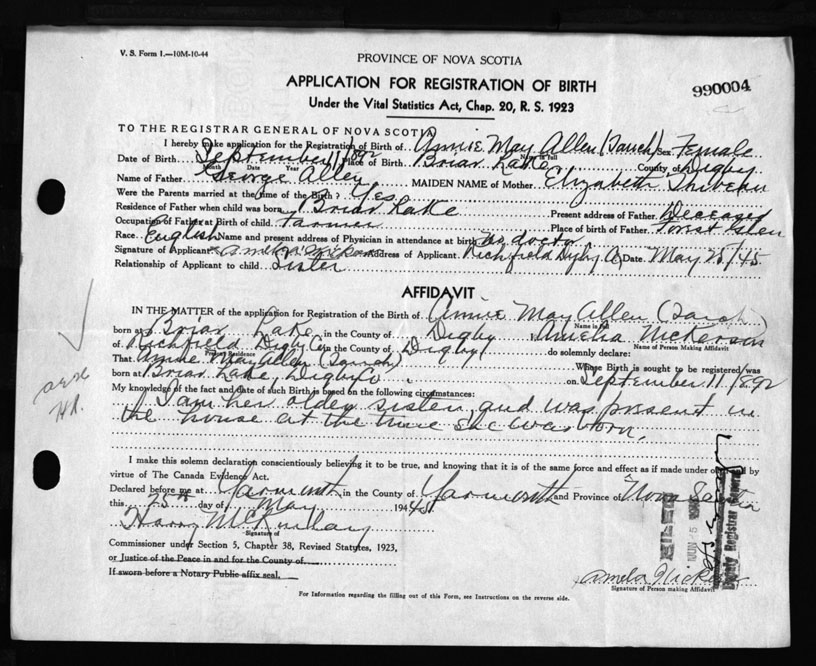 V. S. Form 1.—10M-10-44
PROVINCE OF NOVA SCOTIA
APPLICATION FOR REGISTRATION OF BIRTH
990004
Under the Vital Statistics Act, Chap. 20, R. S. 1923
TO THE REGISTRAR GENERAL OF NOVA SCOTIA
I hereby make application for the Registration of Birth of Annie May Allen (Sarah) Sex Female
Name in full
Date of Birth September 11 1892 Place of Birth Briar Lake County of Digby
Month Date Year
Name of Father George Allen MAIDEN NAME of Mother Elizabeth
Were the Parents married at the time of the Birth? Yes
Residence of Father when child was born Briar Lake Present address of Father Deceased
Occupation of Father at Birth of child Farmer Place of birth of Father Forest Glen
Race English Name and present address of Physician in attendance at birth No doctor
Signature of Applicant Address of Applicant Richfield Digby Co Date May 25/45
Relationship of Applicant to child Sister
AFFIDAVIT
IN THE MATTER of the application for Registration of the Birth of Annie May Allen (Sarah)
Name in full
born at Briar Lake in the County of Digby Amelia Nickerson
Name of Person Making Affidavit
of Richfield Digby Co in the County of Digby do solemnly declare:
Present Residence
That Annie May Allen (Sarah) Whose Birth is sought to be registered/was
born at Briar Lake, Digby Co. on September 11/1892
My knowledge of the fact and date of such Birth is based on the following circumstances:
I am her older sister, and was present in
the house at the time she was born.
I make this solemn declaration conscientiously believing it to be true, and knowing that it is of the same force and effect as if made under oath and by
virtue of The Canada Evidence Act.
Declared before me at Yarmouth in the County of Yarmouth and Province of Nova Scotia
this 25th day of May 1945
Harry
Signature of
Commissioner under Section 5, Chapter 38, Revised Statutes, 1923,
or Justice of the Peace in and for the County of
If sworn before a Notary Public affix seal.
Amelia Nickerson
Signature of Person making Affidavit
FILED
JUN 5 1945
Deputy Registrar General
For Information regarding the filling out of this Form, see Instructions on the reverse side.